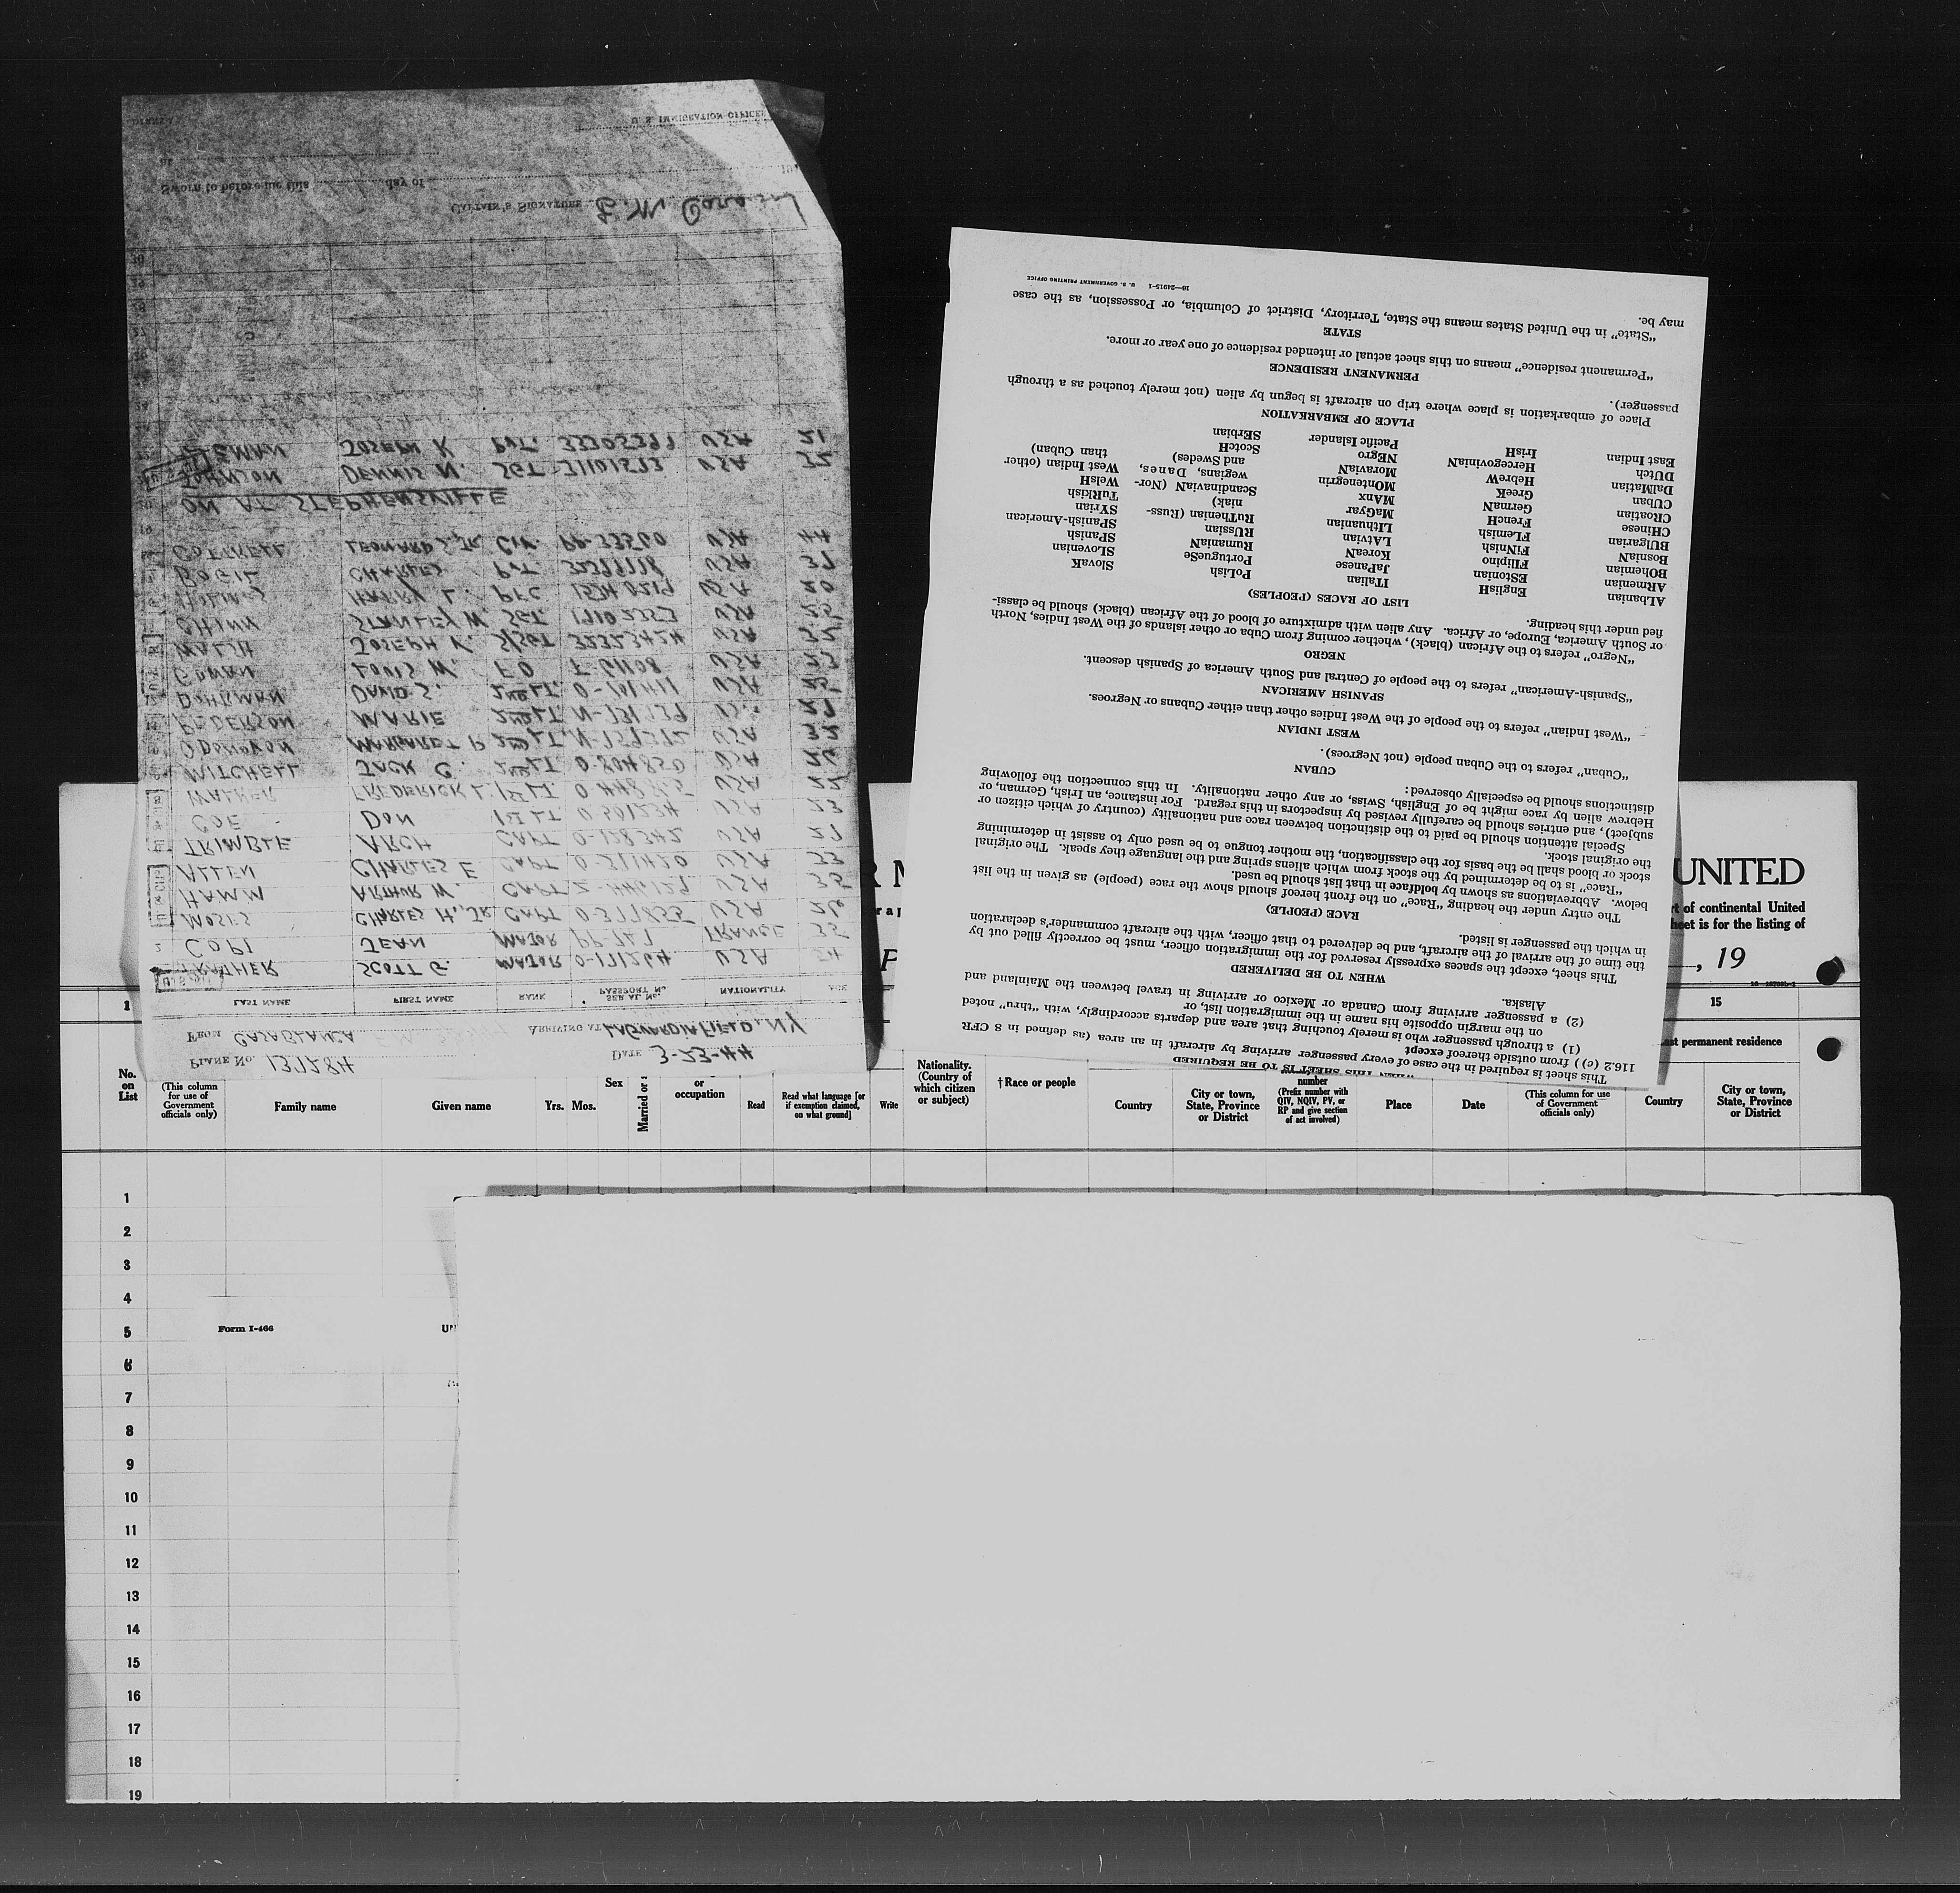 PLANE NO. 137284 DATE 3-23-44
FROM CASABLANCA ARRIVING AT LAGUARDIA FIELD, NY
LAST NAME FIRST NAME RANK PASSPORT No. SERIAL No. NATIONALITY AGE
PRATHER SCOTT G. MAJOR 0-171264 USA
2 COPI JEAN MAJOR PP-747 FRANCE 35
MOSES CHARLES H., JR CAPT 0-377855 USA 26
HAMM ARTHUR W. CAPT USA 35
ALLEN CHARLES E CAPT 0-511420 USA 33
TRIMBLE ARCH CAPT 0-128342 USA
COE DON 1ST LT 0-501234 USA 23
WALKER FREDERICK L. 1ST LT USA 22
MITCHELL JACK G. 2ND LT 0-804850 USA 26
MARGARET P. 2ND LT N-759372 USA 32
PEDERSON MARIE 2ND LT N-731739
DAVID S. 2ND LT. USA 25
COWAN LOUIS W. F O T-61108 USA
WALSH JOSEPH V. S/SGT 32323424 USA 32
STANLEY W. SGT. USA 25
HOLMES HARRY L. PFC USA 20
CHARLES PVT USA
COTTRELL LEONARD S, JR CIV. PP-33560 USA 44
ON AT STEPHENSVILLE
JOHNSON DENNIS N. SGT USA 32
JOSEPH K PVT. USA 21
CAPTAIN'S SIGNATURE
Sworn to before me this day of
U. S. IMMIGRATION OFFICER
WHEN THIS SHEET IS TO BE REQUIRED
This sheet is required in the case of every passenger arriving by aircraft in an area (as defined in 8 CFR
116.2 (c)) from outside thereof except
(1) a through passenger who is merely touching that area and departs accordingly, with "thru" noted
on the margin opposite his name in the immigration list, or
(2) a passenger arriving from Canada or Mexico or arriving in travel between the Mainland and
Alaska.
WHEN TO BE DELIVERED
This sheet, except the spaces expressly reserved for the immigration officer, must be correctly filled out by
the time of the arrival of the aircraft, and be delivered to that officer, with the aircraft commander's declaration
in which the passenger is listed.
RACE (PEOPLE)
The entry under the heading "Race" on the front hereof should show the race (people) as given in the list
below. Abbreviations as shown by boldface in that list should be used.
"Race" is to be determined by the stock from which aliens spring and the language they speak. The original
stock or blood shall be the basis for the classification, the mother tongue to be used only to assist in determining
the original stock.
Special attention should be paid to the distinction between race and nationality (country of which citizen or
subject), and entries should be carefully revised by inspectors in this regard. For instance, an Irish, German, or
Hebrew alien by race might be of English, Swiss, or any other nationality. In this connection the following
distinctions should be especially observed:
CUBAN
"Cuban" refers to the Cuban people (not Negroes).
WEST INDIAN
"West Indian" refers to the people of the West Indies other than either Cubans or Negroes.
SPANISH AMERICAN
"Spanish-American" refers to the people of Central and South America of Spanish descent.
NEGRO
"Negro" refers to the African (black), whether coming from Cuba or other islands of the West Indies, North
or South America, Europe, or Africa. Any alien with admixture of blood of the African (black) should be classi-
fied under this heading.
LIST OF RACES (PEOPLES)
ALbanian EnglisH ITalian PoLish SlovaK
ARmenian EStonian JaPanese PortugueSe SLOvenian
BOhemian Filipino KoreaN RumaniaN SPanish
BosniaN FiNnish LAtvian RUssian SPanish-American
BUlgarian FLemish LIthuanian RuThenian (Russ- SYrian
CHinese FrencH MaGyar niak) TuRkish
CRoatian GermaN MAnx ScandinaviaN (Nor- WelsH
CUban GreeK MOntenegrin wegians, Danes, West Indian (other
DalMatian HebreW MoraviaN and Swedes) than Cuban)
DUtch HercegoviniaN NEgro ScotcH
East Indian IrisH Pacific Islander SErbian
PLACE OF EMBARKATION
Place of embarkation is place where trip on aircraft is begun by alien (not merely touched as a through
passenger).
PERMANENT RESIDENCE
"Permanent residence" means on this sheet actual or intended residence of one year or more.
STATE
"State" in the United States means the State, Territory, District of Columbia, or Possession, as the case
may be.
16—24915-1 U. S. GOVERNMENT PRINTING OFFICE
UNITED
of continental United
sheet is for the listing of
, 19
1 15
permanent residence
No. on List
(This column for use of Government officials only)
Family name
Given name
Yrs. Mos.
Sex
Married or
or occupation
Read
Read what language [or if exemption claimed, on what ground]
Write
Nationality. (Country of which citizen or subject)
†Race or people
Country
City or town, State, Province or District
number (Prefix number with QIV, NQIV, PV, or RP and give section of act involved)
Place
Date
(This column for use of Government officials only)
Country
City or town, State, Province or District
1
2
3
4
5
Form I-466
6
7
8
9
10
11
12
13
14
15
16
17
18
19